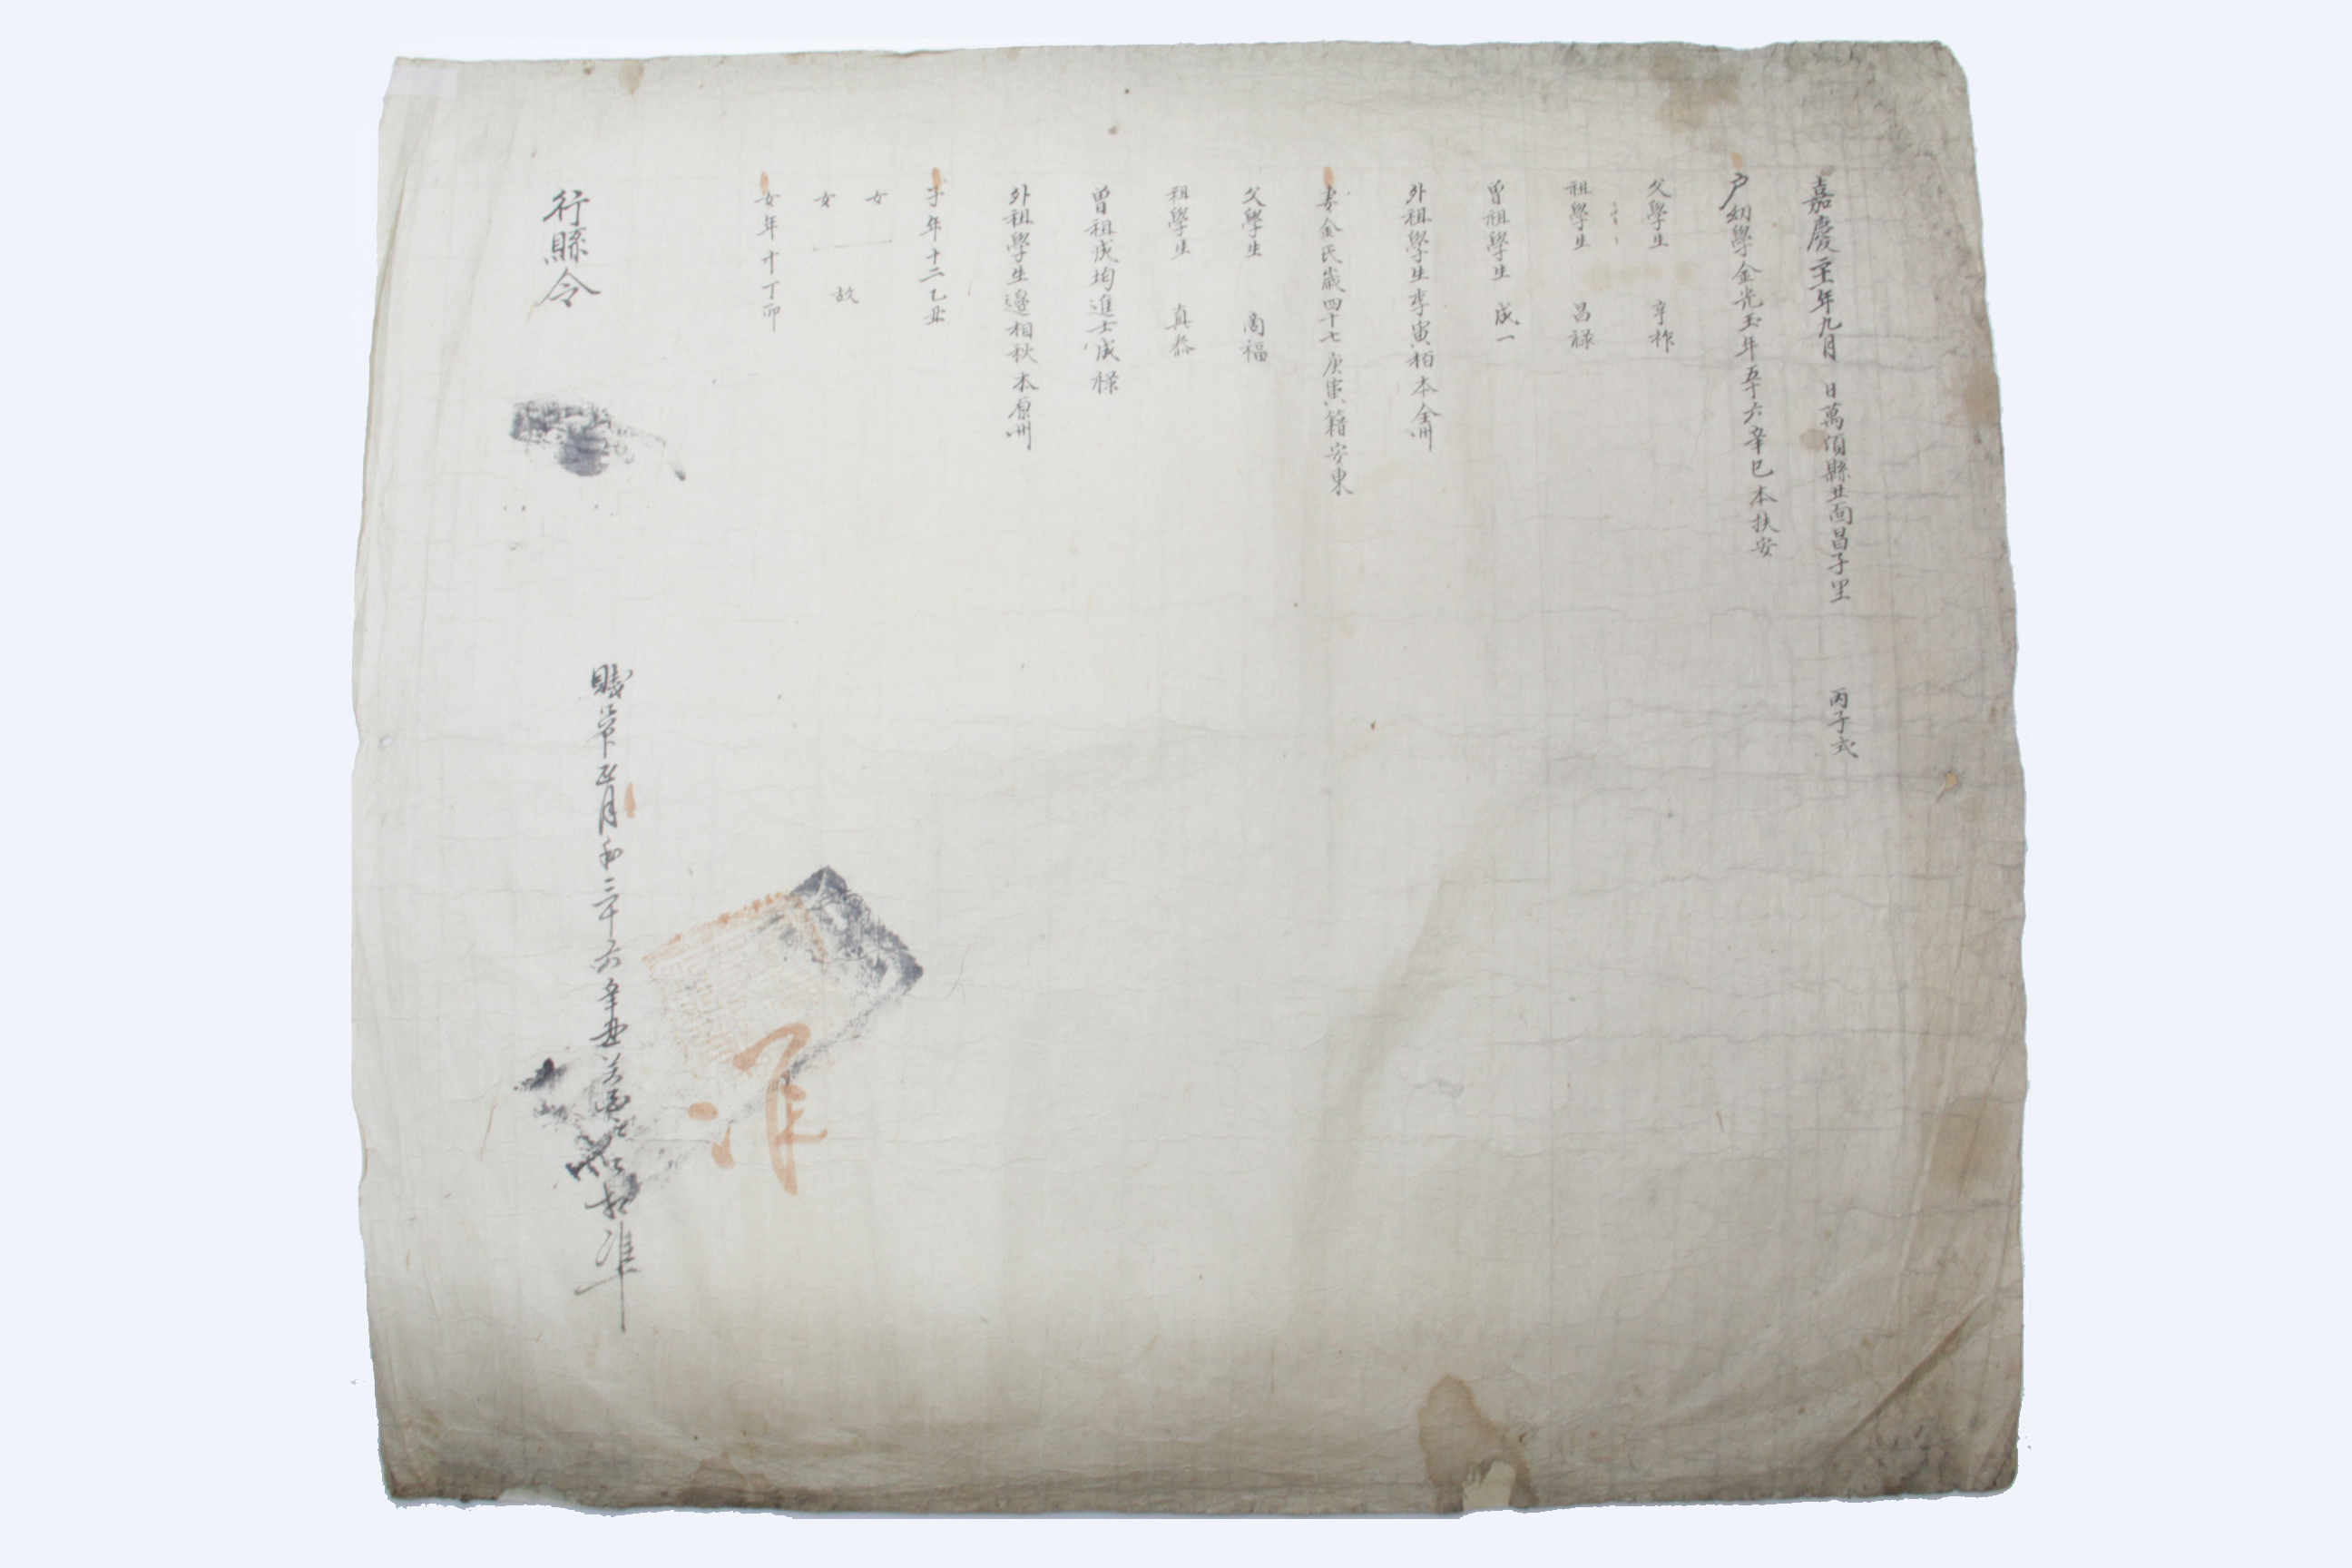 嘉慶二十一年九月 日萬頃縣北面昌子里 丙子式
戶幼學金光玉年五十六辛巳本扶安
父學生 亨祚
祖學生 昌祿
曾祖學生 成一
外祖學生李寅栢本全州
妻金氏歲四十七庚寅籍安東
父學生 尚福
祖學生 真泰
曾祖成均進士成祿
外祖學生邊相秋本原州
子年十二乙丑
女
女 故
女年十丁卯
行縣令
正月 三十六 準
准